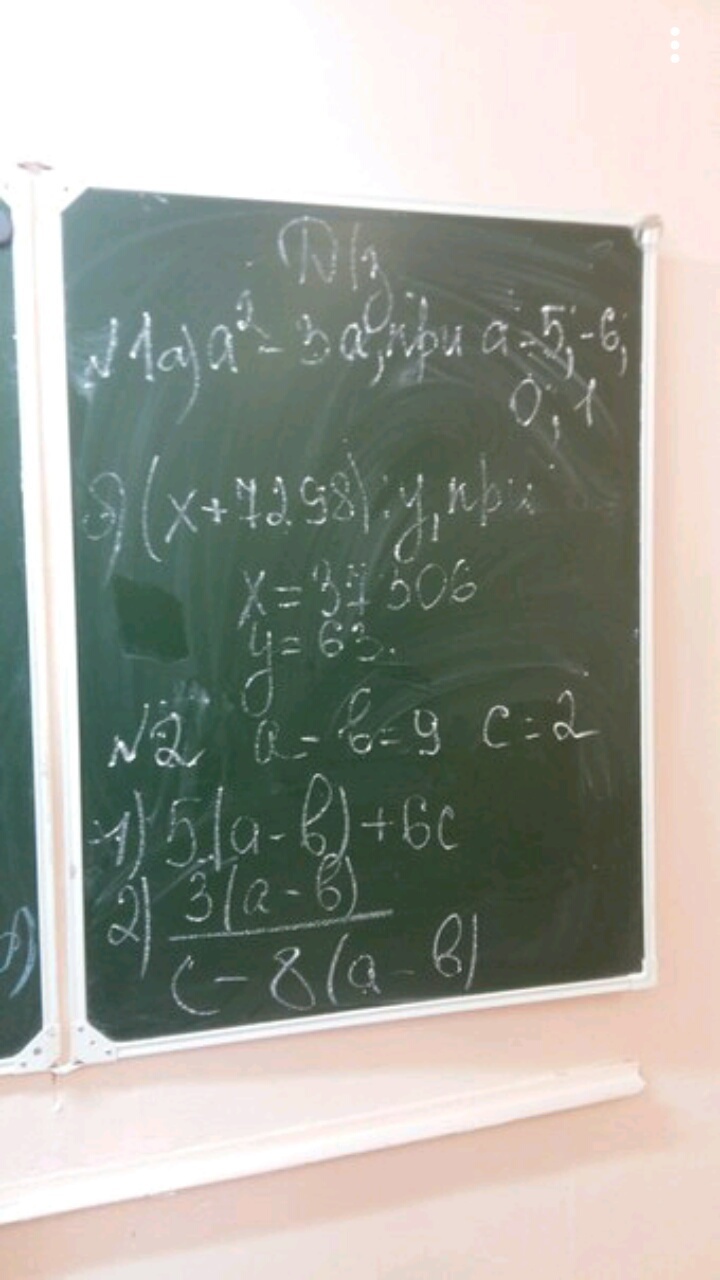 Д/з
№1 а) а² - 3а, при а = 5; -6;
0; 1
э) (x + 7298) : y, при
x = 37306
y = 63.
№2 а - в = 9 с = 2
1) 5(а - в) + 6с
2) 3(а - в)
с - 8(а - в)